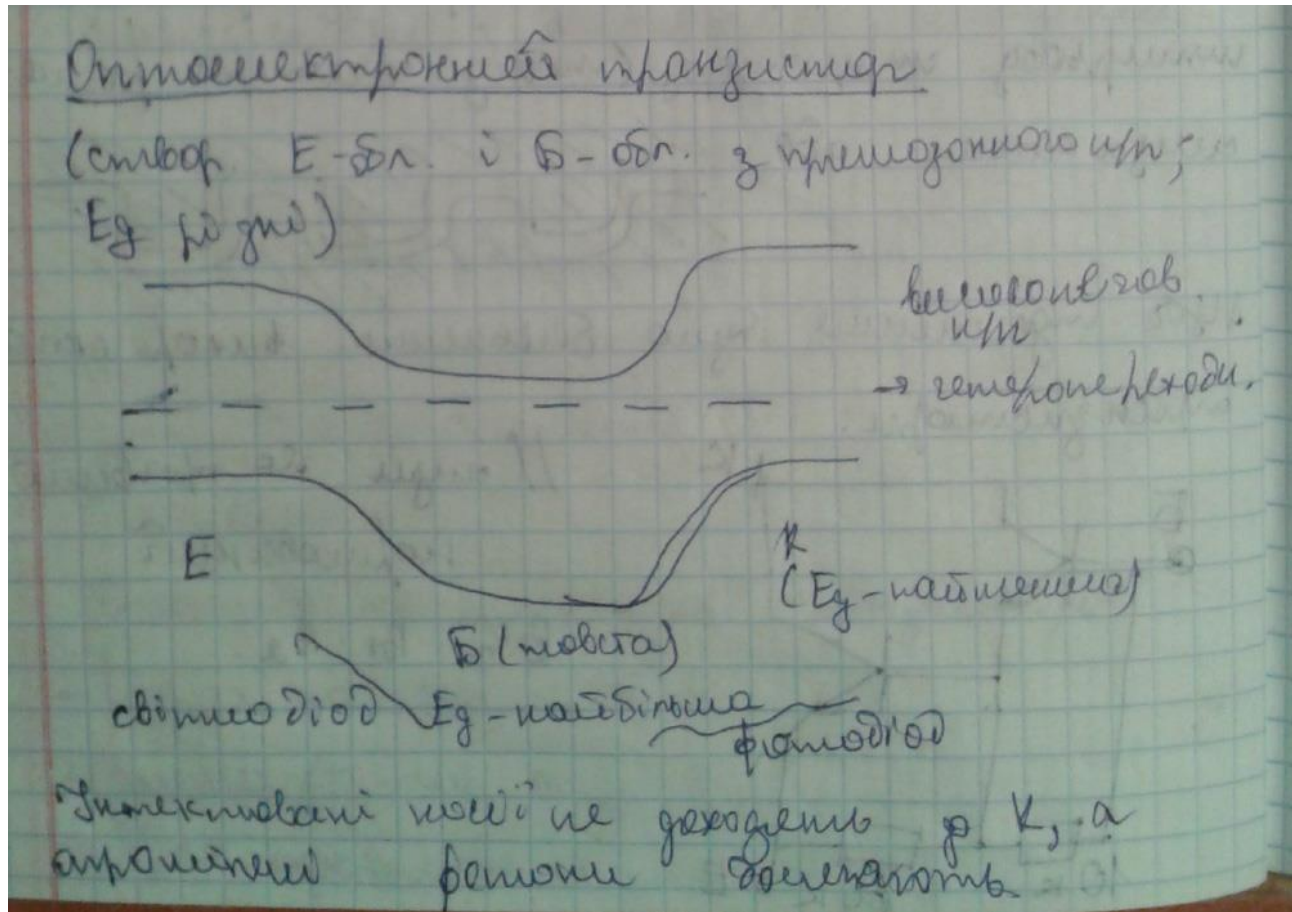 Оптоелектронний транзистор
(створ Е-обл. і Б-обл. з прямозонного н/п;
Eg різні)
високолегов.
н/п
→ гетеропереходи.
Е
К
(Eg-найменша)
Б (товста)
світлодіод Eg-найбільша
фотодіод
Інжектовані носії не доходять до К, а
отримані фотони долітають